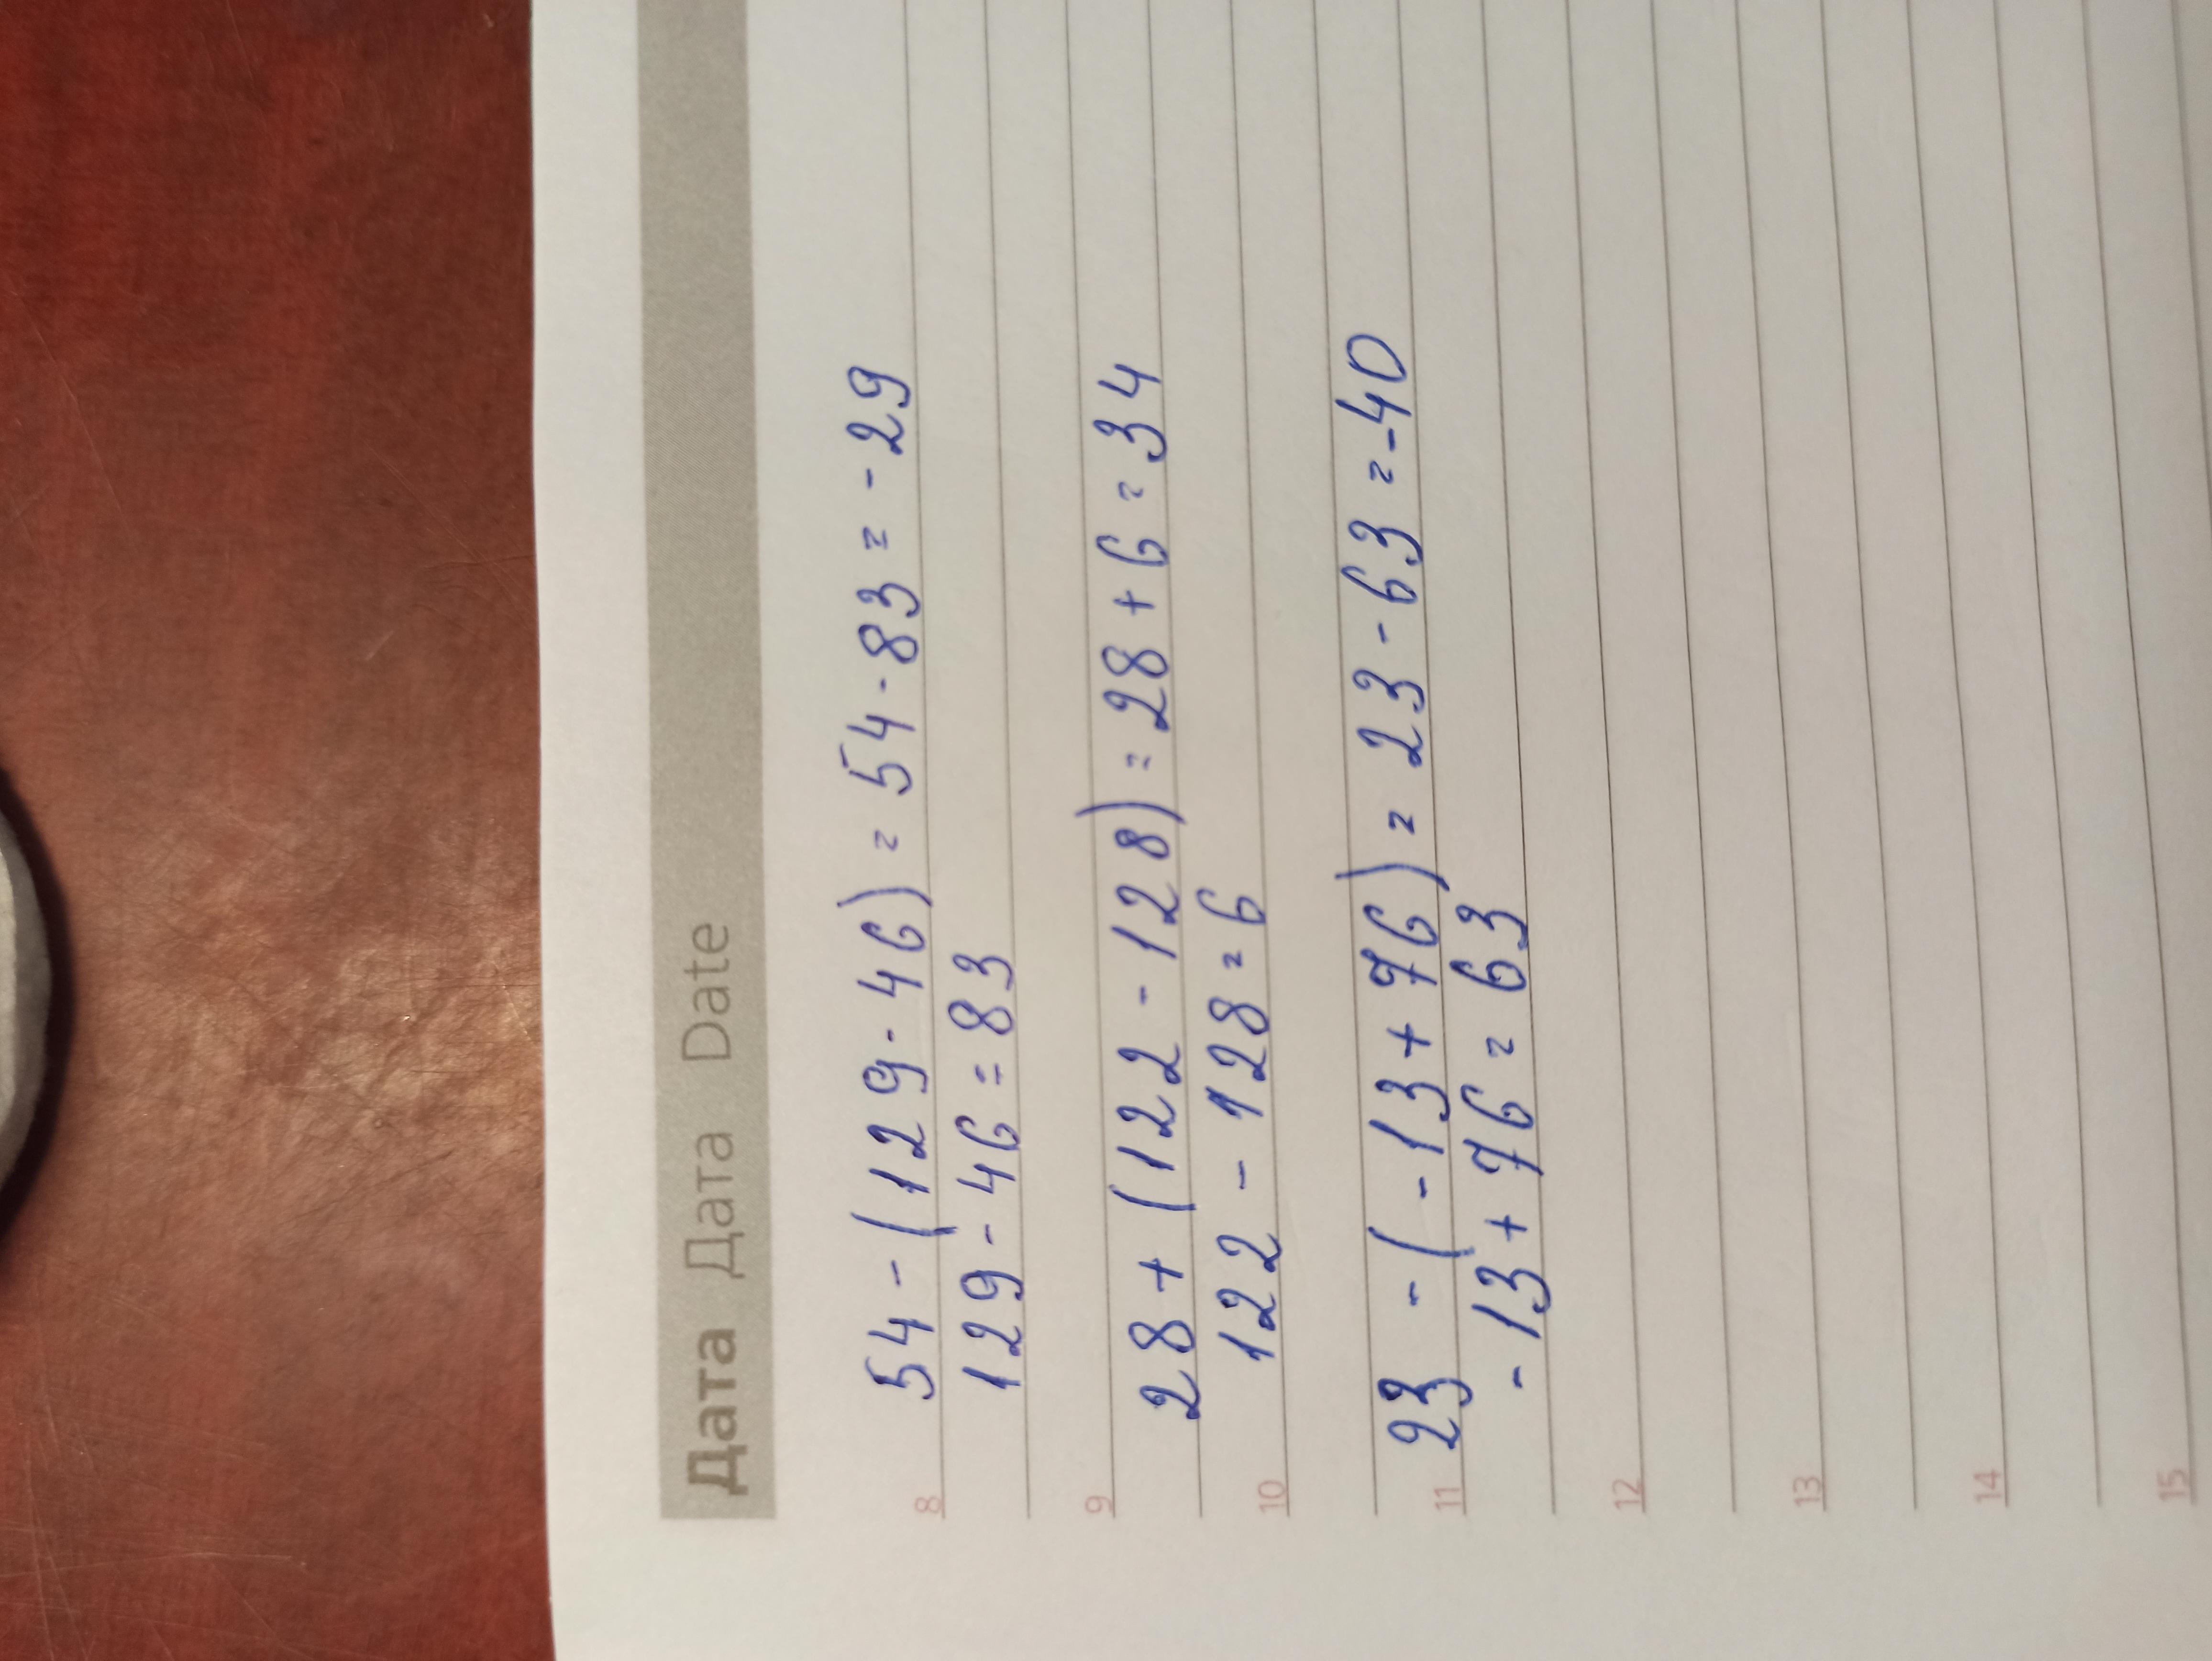 Дата Дата Date
8 54 - (129 - 46) = 54 - 83 = - 29
129 - 46 = 83
9 28 + (122 - 128) = 28 + 6 = 34
10 122 - 128 = 6
11 23 - (-13 + 76) = 23 - 63 = -40
- 13 + 76 = 63
12
13
14
15